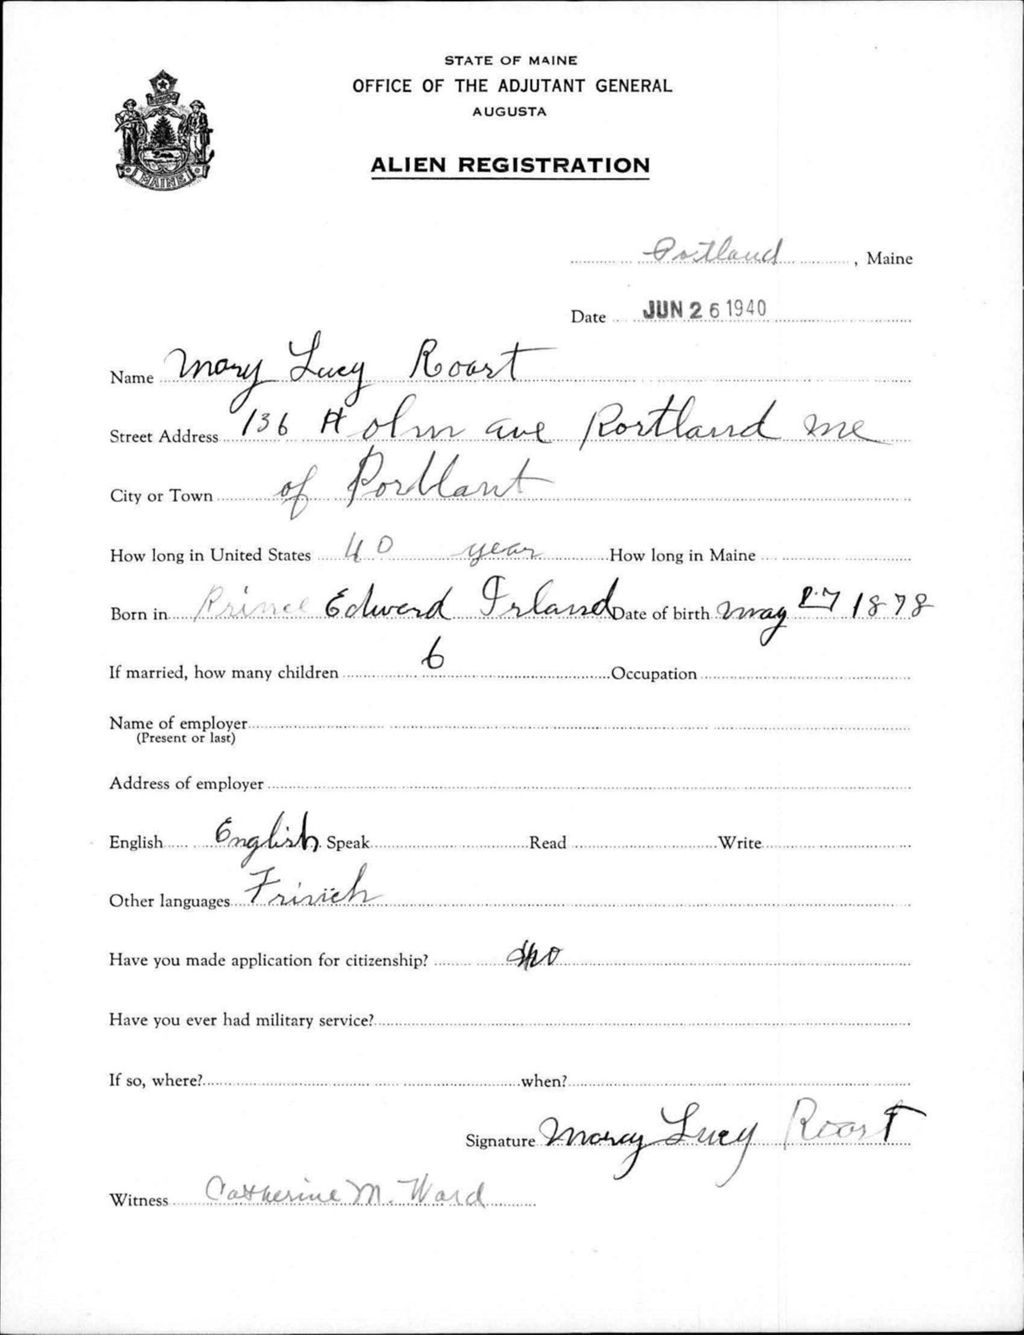 STATE OF MAINE
OFFICE OF THE ADJUTANT GENERAL
AUGUSTA
ALIEN REGISTRATION
MAINE
Portland, Maine
Date JUN 26 1940
Name Mary Lucy Roart
Street Address 136 Holm ave Portland me
City or Town of Portlant
How long in United States 40 year How long in Maine
Born in Prince Edward Irland Date of birth may 27 1878
If married, how many children 6 Occupation
Name of employer
(Present or last)
Address of employer
English English Speak Read Write
Other languages Frinch
Have you made application for citizenship? no
Have you ever had military service?
If so, where? when?
Signature Mary Lucy Roart
Witness Catherine M. Ward